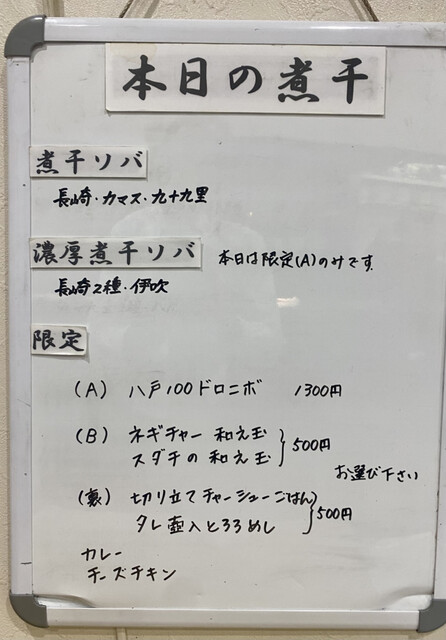 本日の煮干
煮干ソバ
長崎・カマス・九十九里
濃厚煮干ソバ 本日は限定(A)のみです。
長崎2種・伊吹
限定
(A) 八戸100ドロニボ 1300円
(B) ネギチャー 和え玉
スダチの和え玉
500円
お選び下さい
(裏) 切り立てチャーシューごはん
タレ壺入とろろめし
500円
カレー
チーズチキン